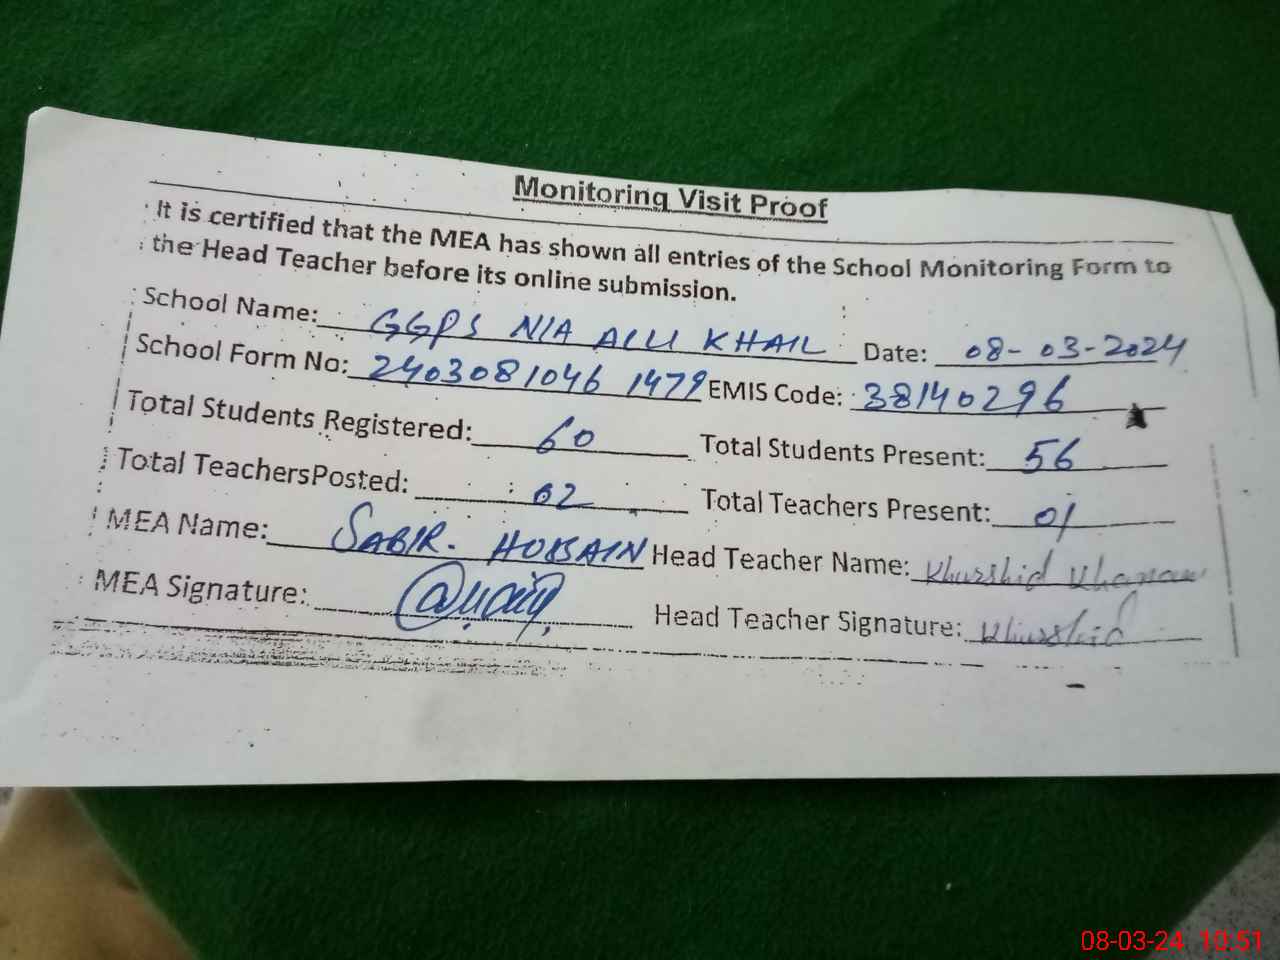 Monitoring Visit Proof
It is certified that the MEA has shown all entries of the School Monitoring Form to
the Head Teacher before its online submission.
School Name: GGPS NIA ALLI KHAIL Date: 08-03-2024
School Form No: 2403081046 1479 EMIS Code: 38140296
Total Students Registered: 60 Total Students Present: 56
Total TeachersPosted: 02 Total Teachers Present: 01
MEA Name: SABIR. HUSSAIN Head Teacher Name: Khurshid
MEA Signature: Head Teacher Signature: Khurshid
08-03-24 10:51